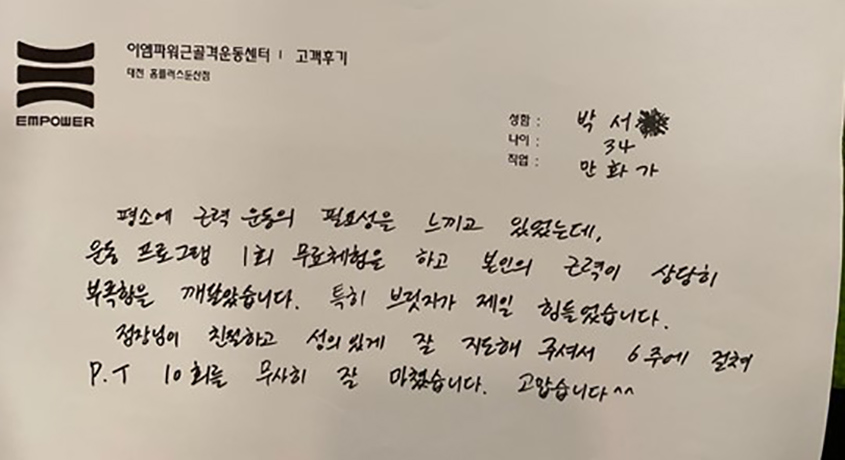 이엠파워근골격운동센터 | 고객후기
대전 홈플러스둔산점
EMPOWER
성함 : 박 서
나이 : 34
직업 : 만화가
평소에 근력 운동의 필요성을 느끼고 있었는데,
운동 프로그램 1회 무료체험을 하고 본인의 근력이 상당히
부족함을 깨달았습니다. 특히 브릿자가 제일 힘들었습니다.
점장님이 친절하고 성의있게 잘 지도해 주셔서 6주에 걸쳐
P.T 10회를 무사히 잘 마쳤습니다. 고맙습니다^^